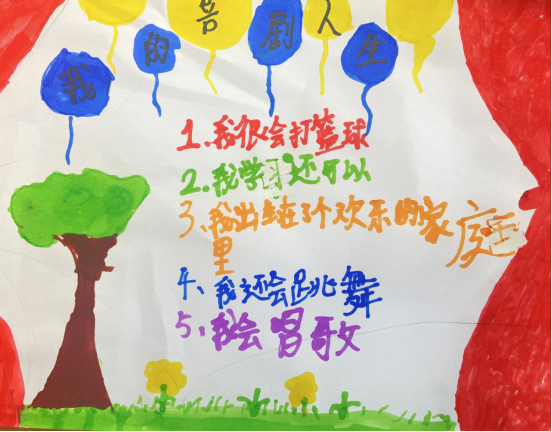 我的喜剧人生
1、我很会打篮球
2、我学习还可以
3、我出生在了个欢乐的家庭
里
4、我还会跳舞
5、我会唱歌